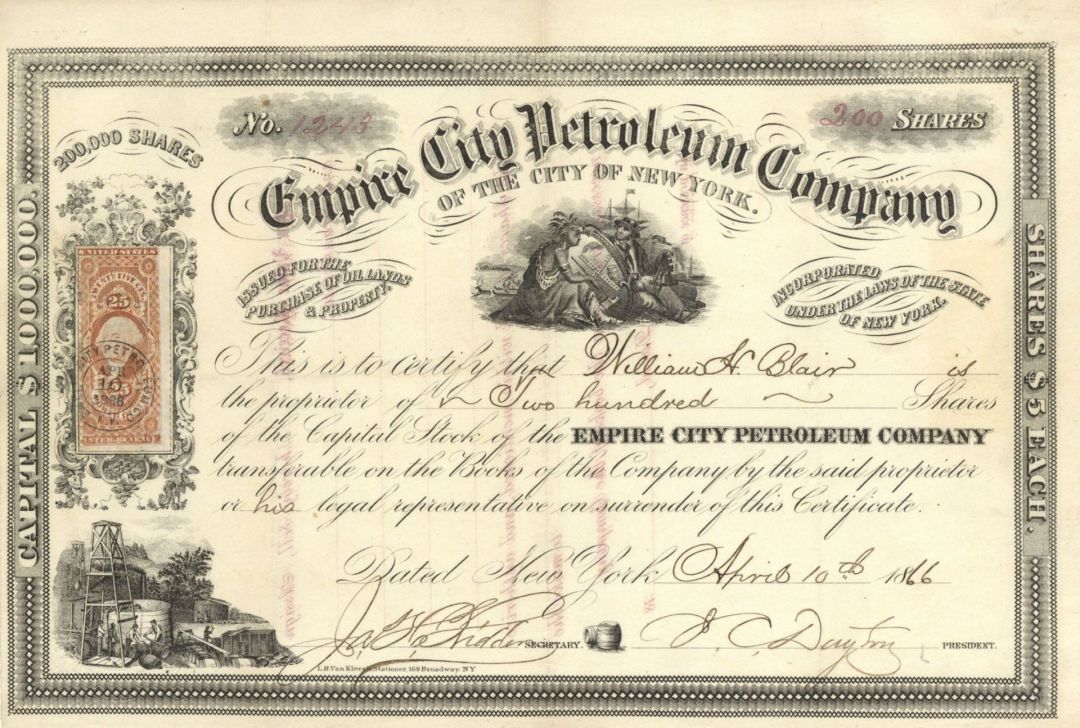 No. 1243
200 SHARES
200,000 SHARES
Empire City Petroleum Company
OF THE CITY OF NEW YORK.
ISSUED FOR THE
PURCHASE OF OIL LANDS
& PROPERTY.
INCORPORATED
UNDER THE LAWS OF THE STATE
OF NEW YORK.
CAPITAL $ 1,000,000.
SHARES $5 EACH.
UNITED STATES
25
INTER. REVENUE
CITY PETRO
APR
10
1866
N.Y.
This is to certify that William H. Blair is
the proprietor of Two hundred Shares
of the Capital Stock of the EMPIRE CITY PETROLEUM COMPANY
transferable on the Books of the Company by the said proprietor
or his legal representative on surrender of this Certificate.
Dated New York April 10th 1866
SECRETARY.
J. C. Dayton PRESIDENT.
L.H. Van Kleeck Stationer, 169 Broadway. NY